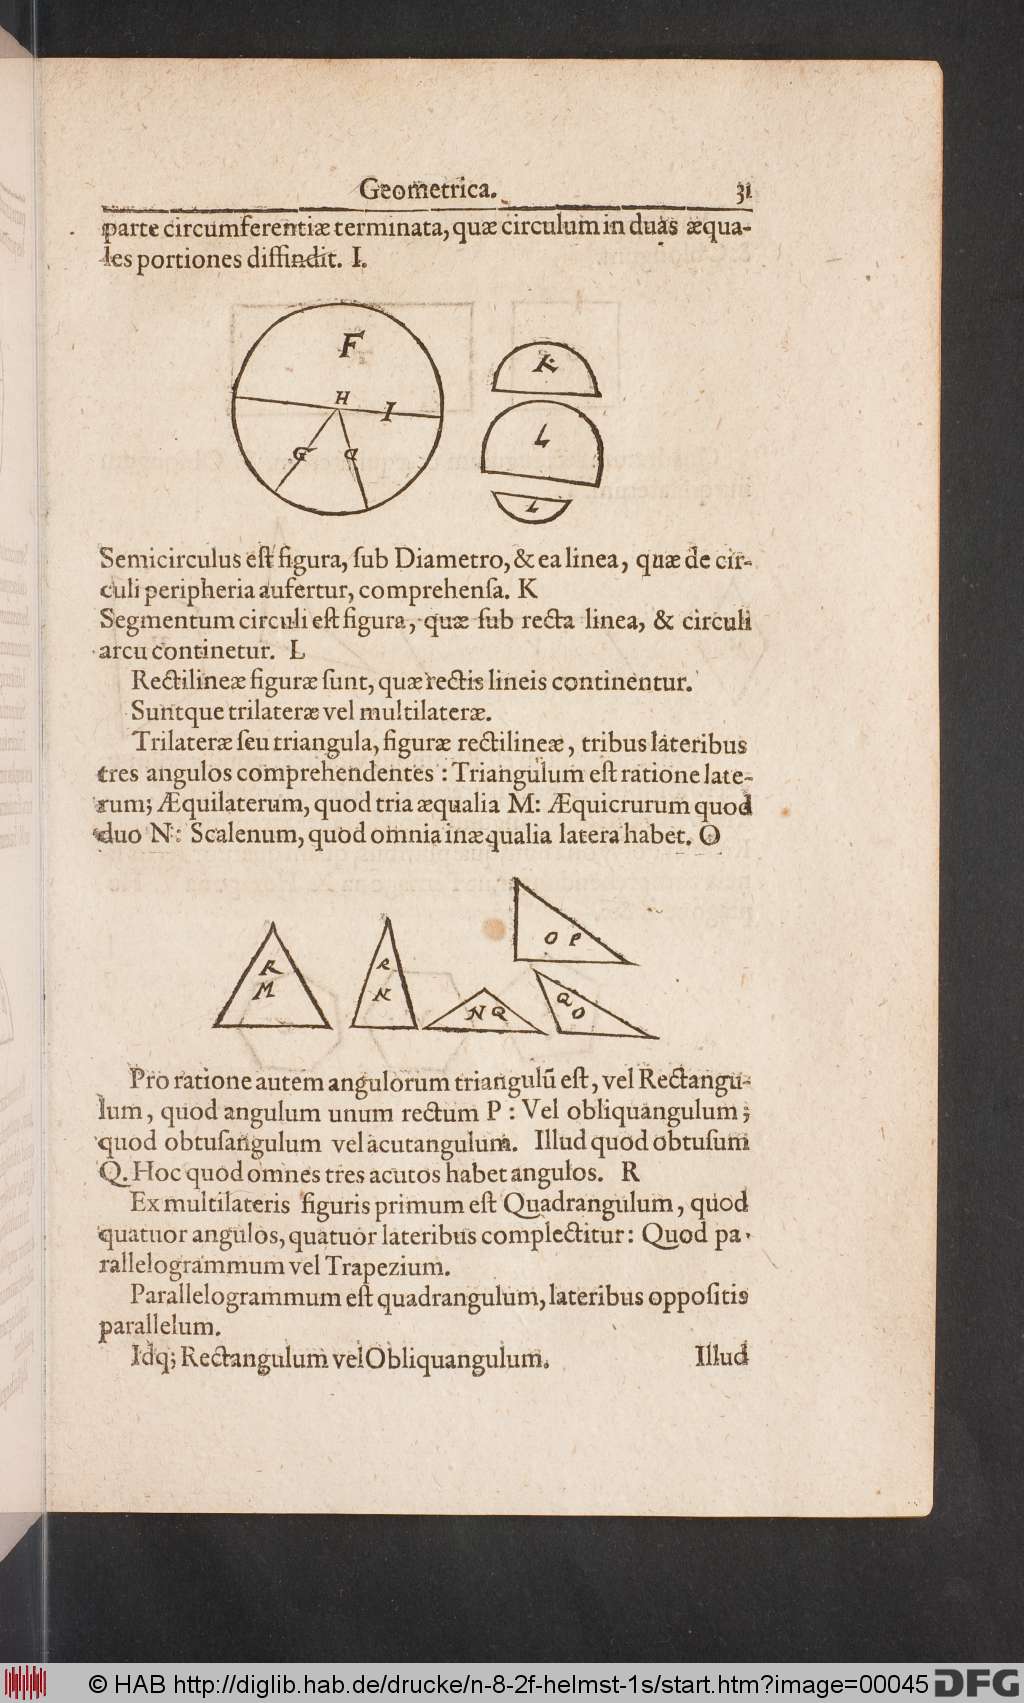 Geometrica. 31
parte circumferentiæ terminata, quæ circulum in duas æqua-
les portiones diffindit. I.
F
H
I
G
G
K
L
L
Semicirculus eſt figura, ſub Diametro, & ea linea, quæ de cir-
culi peripheria aufertur, comprehenſa. K
Segmentum circuli eſt figura, quæ ſub recta linea, & circuli
arcu continetur. L
Rectilineæ figuræ ſunt, quæ rectis lineis continentur.
Suntque trilateræ vel multilateræ.
Trilateræ ſeu triangula, figuræ rectilineæ, tribus lateribus
tres angulos comprehendentes : Triangulum eſt ratione late-
rum; Æquilaterum, quod tria æqualia M: Æquicrurum quod
duo N: Scalenum, quod omnia inæqualia latera habet. O
O P
R
M
R
N
N Q
Q
O
Pro ratione autem angulorum triangulū eſt, vel Rectangu-
lum, quod angulum unum rectum P : Vel obliquangulum;
quod obtuſangulum vel acutangulum. Illud quod obtuſum
Q. Hoc quod omnes tres acutos habet angulos. R
Ex multilateris figuris primum eſt Quadrangulum, quod
quatuor angulos, quatuor lateribus complectitur: Quod pa-
rallelogrammum vel Trapezium.
Parallelogrammum eſt quadrangulum, lateribus oppoſitis
parallelum.
Idq; Rectangulum vel Obliquangulum. Illud
© HAB http://diglib.hab.de/drucke/n-8-2f-helmst-1s/start.htm?image=00045 DFG